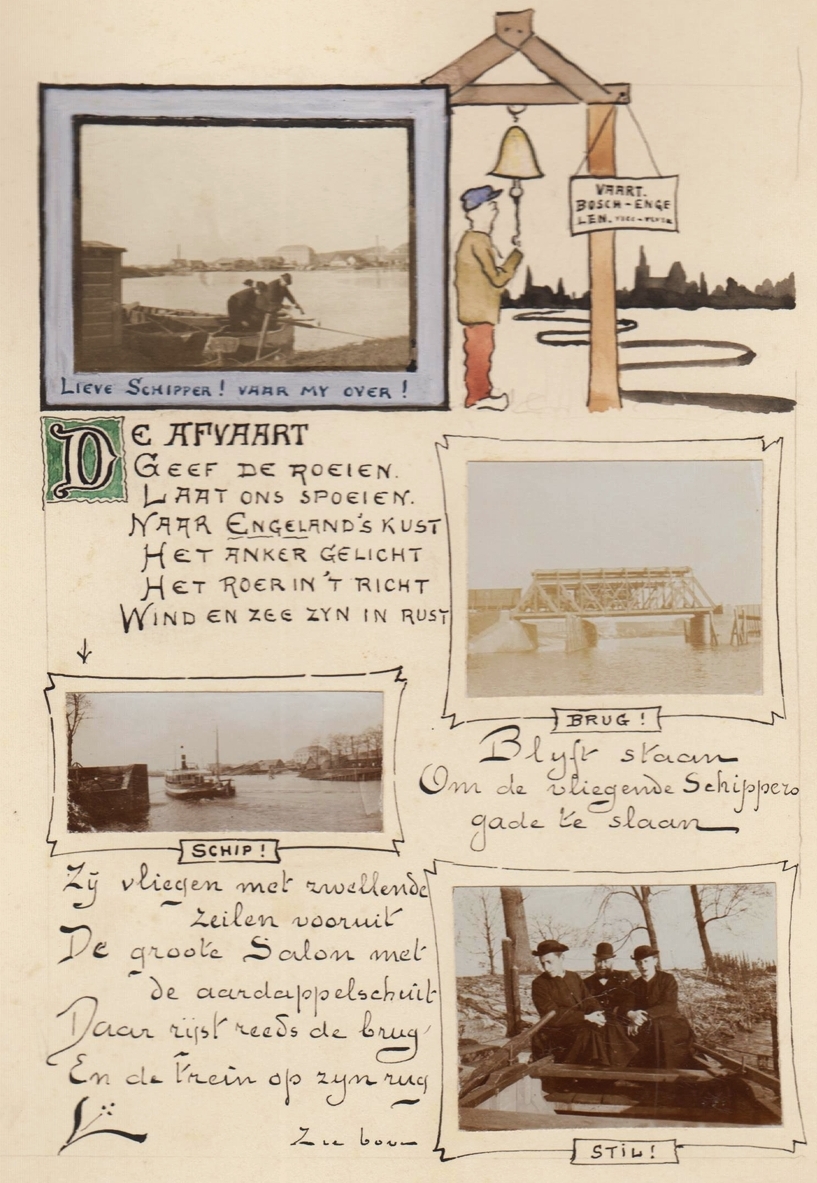 VAART.
BOSCH-ENGE
LEN.
LIEVE SCHIPPER! VAAR MY OVER!
DE AFVAART
GEEF DE ROEIEN.
LAAT ONS SPOEIEN.
NAAR ENGELAND'S KUST
HET ANKER GELICHT
HET ROER IN 'T RICHT
WIND EN ZEE ZYN IN RUST
BRUG!
Blyft staan
Om de vliegende Schippers
gade te slaan
SCHIP!
Zij vliegen met zwellende
zeilen vooruit
De groote Salon met
de aardappelschuit
Daar rijst reeds de brug
En de trein op zyn rug
STIL!